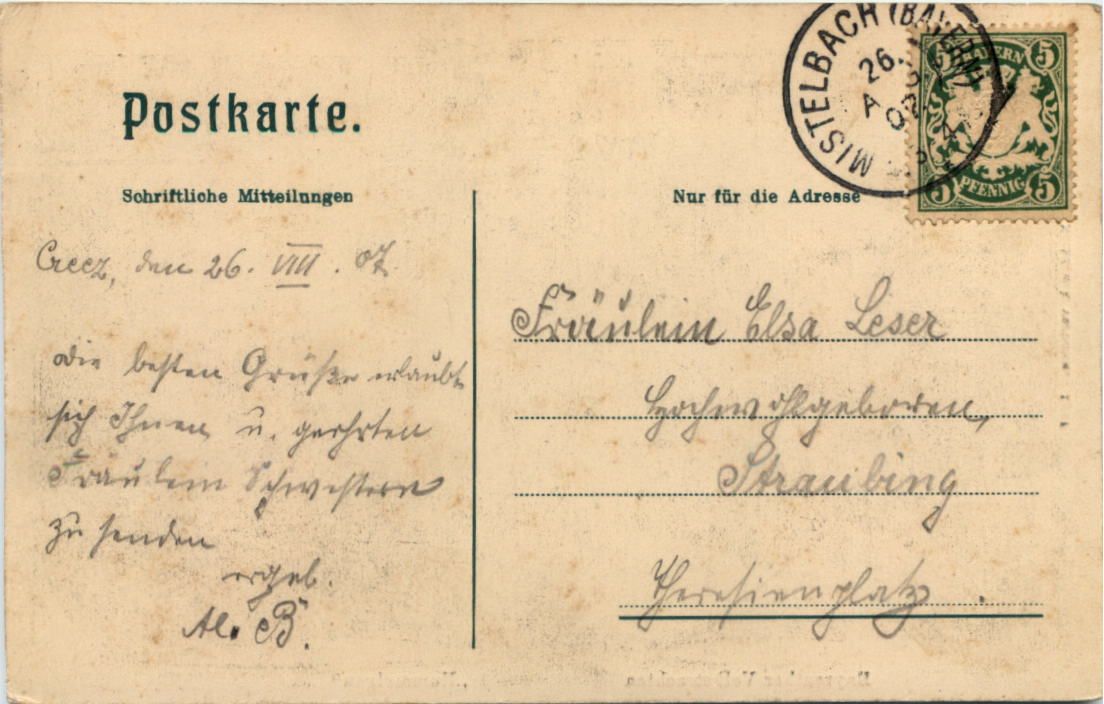 Postkarte.
Schriftliche Mitteilungen
Nur für die Adresse
MISTELBACH (BAYERN)
26.
BAYERN
5 5
PFENNIG
5 5
Creez, den 26. VIII. 07.
Die besten Grüße erlaubt
sich Ihnen u. geehrten
Fräulein Schwestern
zu senden
ergeb.
Al. B.
Fräulein Elsa Leser
Hochwohlgeboren,
Straubing
Theresienplatz.